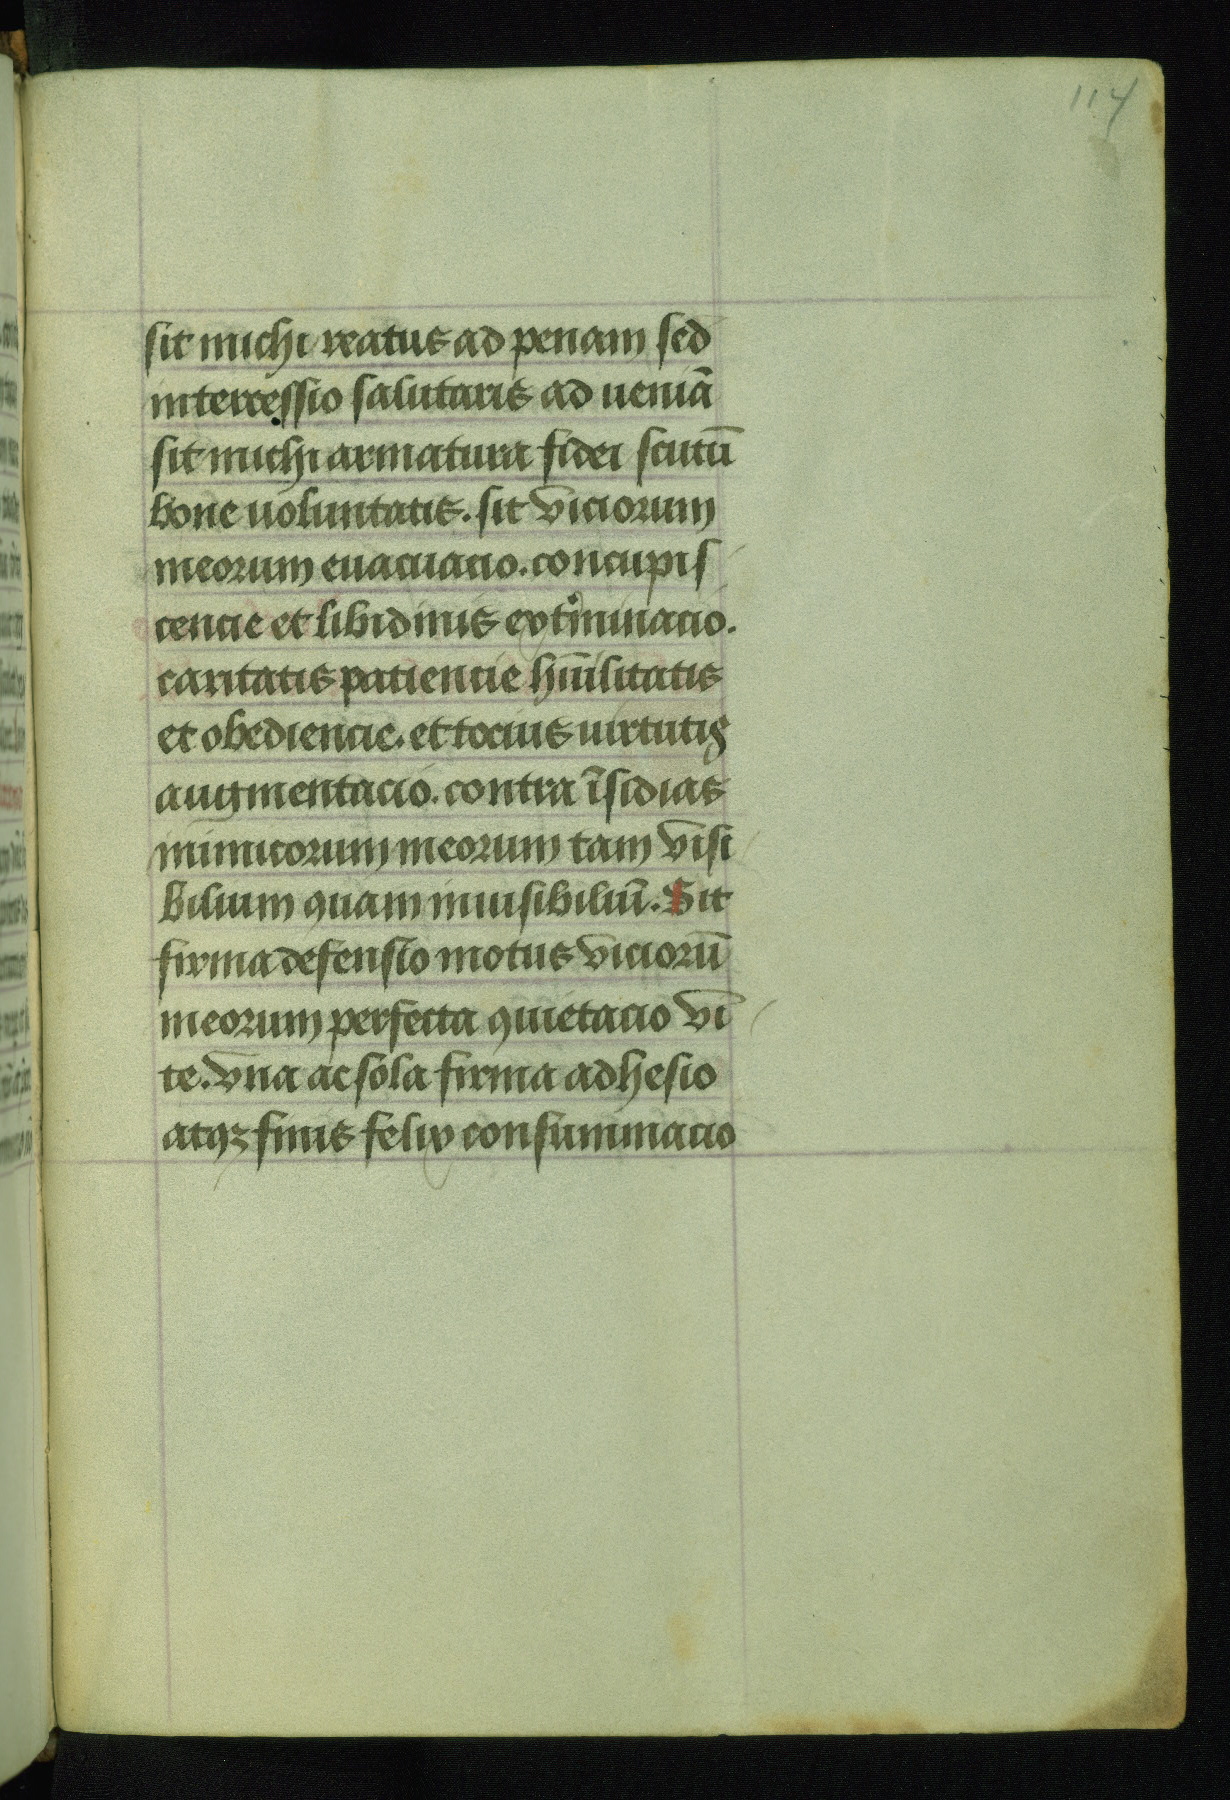 114
sit michi reatus ad penam sed
intercessio salutaris ad ueniā
sit michi armatura fidei scutū
bone uoluntatis. sit viciorum
meorum euacuacio. concupis
cencie et libidinis extiminacio.
caritatis patiencie hūilitatis
et obediencie. et tocius uirtutis
augmentacio. contra īsidias
inimicorum meorum tam visi
bilium quam inuisibiliū. Sit
firma defensio motus viciorū
meorum perfecta quietacio vi
te. vna ac sola firma adhesio
atqꝫ finis felix consummacio